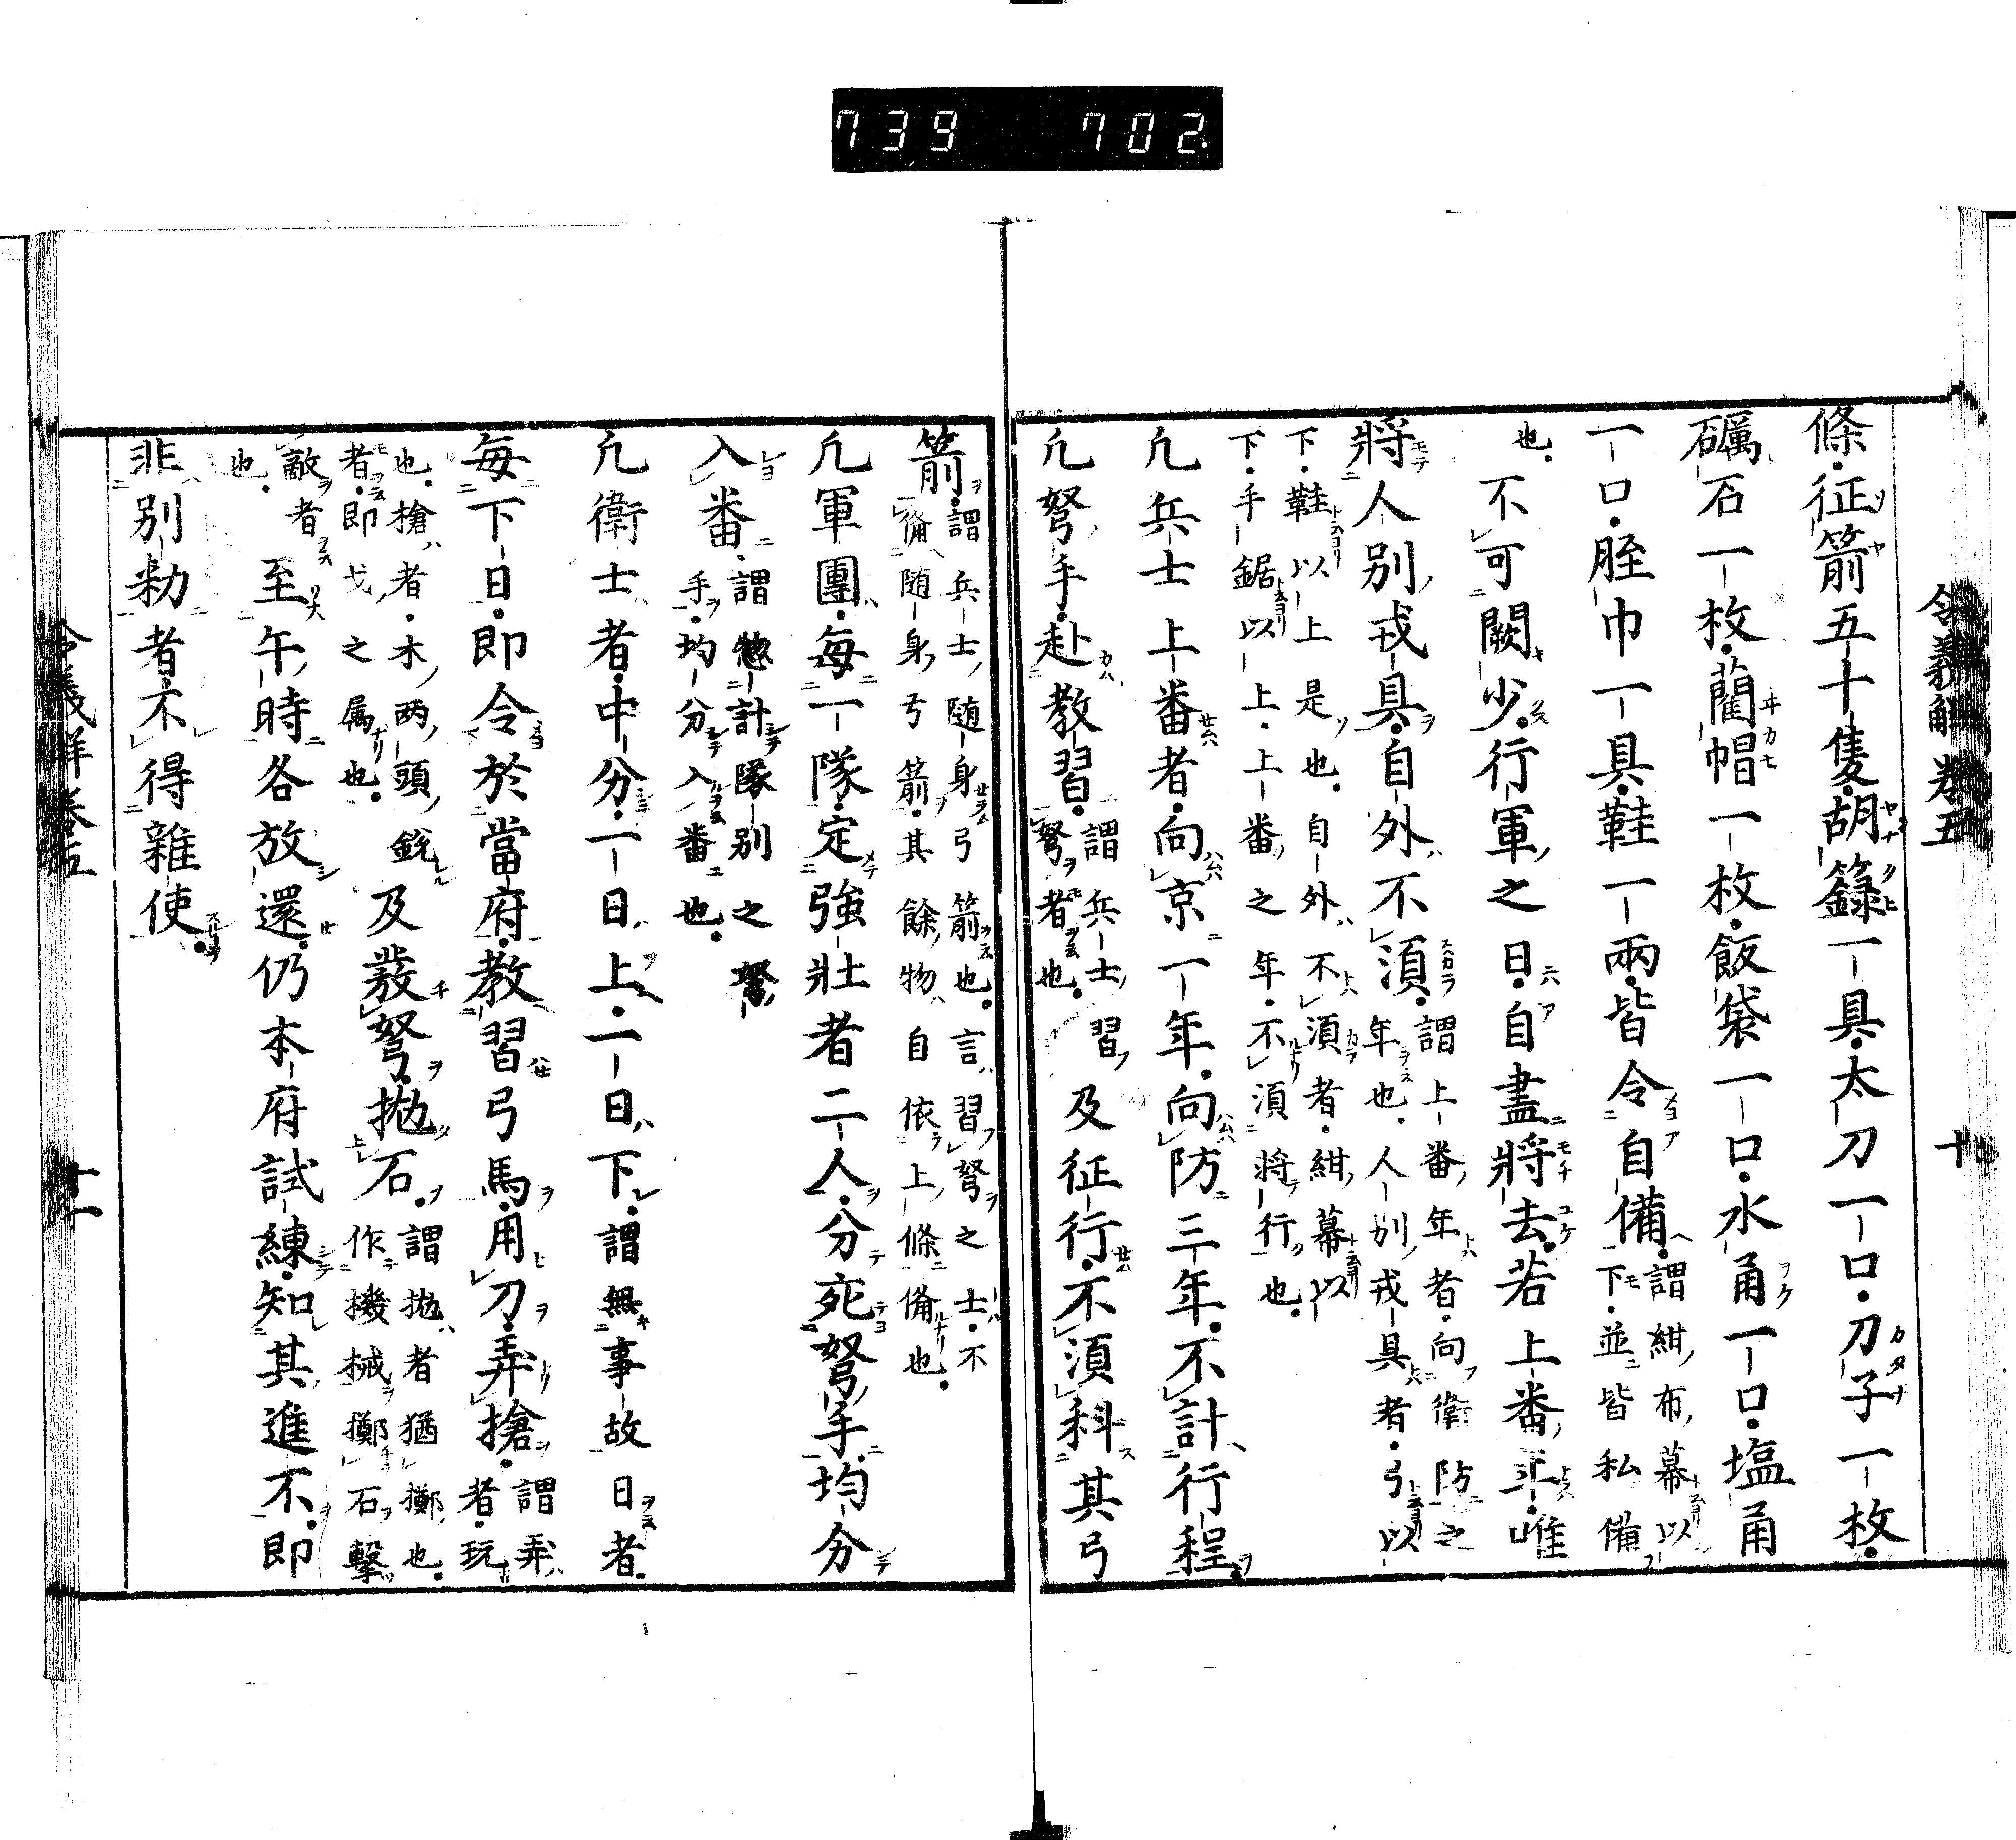 739 702
令義解卷五 十
條征箭五十隻胡籙一具太刀一口刀子一枚
礪石一枚藺帽一枚飯袋一口水甬一口塩甬
一口脛巾一具鞋一兩皆令自備謂紺布幕以
下並皆私備
也不可闕少行軍之日自盡將去若上番年唯
將人別戎具自外不須謂上番年者向衛防之
年也人別戎具者弓以
下鞋以上是也自外不須者紺幕以
下手鋸以上上番之年不須將行也
凢兵士上番者向京一年向防三年不計行程
凢弩手赴教習謂兵士習
弩者也及征行不須科其弓
箭謂兵士随身弓箭也言習弩之士不
備随身弓箭其餘物自依上條備也
凢軍團每一隊定強壯者二人分死弩手均分
入番謂惣計隊別之弩
手均分入番也
凢衛士者中分一日上一日下謂無事故日者
每下日即令於當府教習弓馬用刀弄搶謂弄
者玩
也搶者木両頭銳
者即戈之属也及發弩拋石謂拋者猶擲也
作機械擲石擊
敵者
也至午時各放還仍本府試練知其進不即
非別勑者不得雜使
令義解卷五 十一